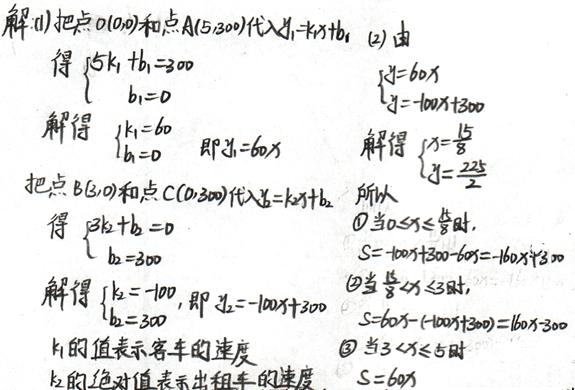 解:(1)把点O(0,0)和点A(5,300)代入y₁=k₁x+b₁
得 {5k₁+b₁=300
b₁=0
解得 {k₁=60
b₁=0 即y₁=60x
把点B(3,0)和点C(0,300)代入y₂=k₂x+b₂
得 {3k₂+b₂=0
b₂=300
解得 {k₂=-100
b₂=300 ,即y₂=-100x+300
k₁的值表示客车的速度
k₂的绝对值表示出租车的速度
(2)由
{y=60x
y=-100x+300
解得 {x=15/8
y=225/2
所以
①当0≤x≤15/8时,
S=-100x+300-60x=-160x+300
②当15/8<x≤3时,
S=60x-(-100x+300)=160x-300
③当3<x≤5时
S=60x